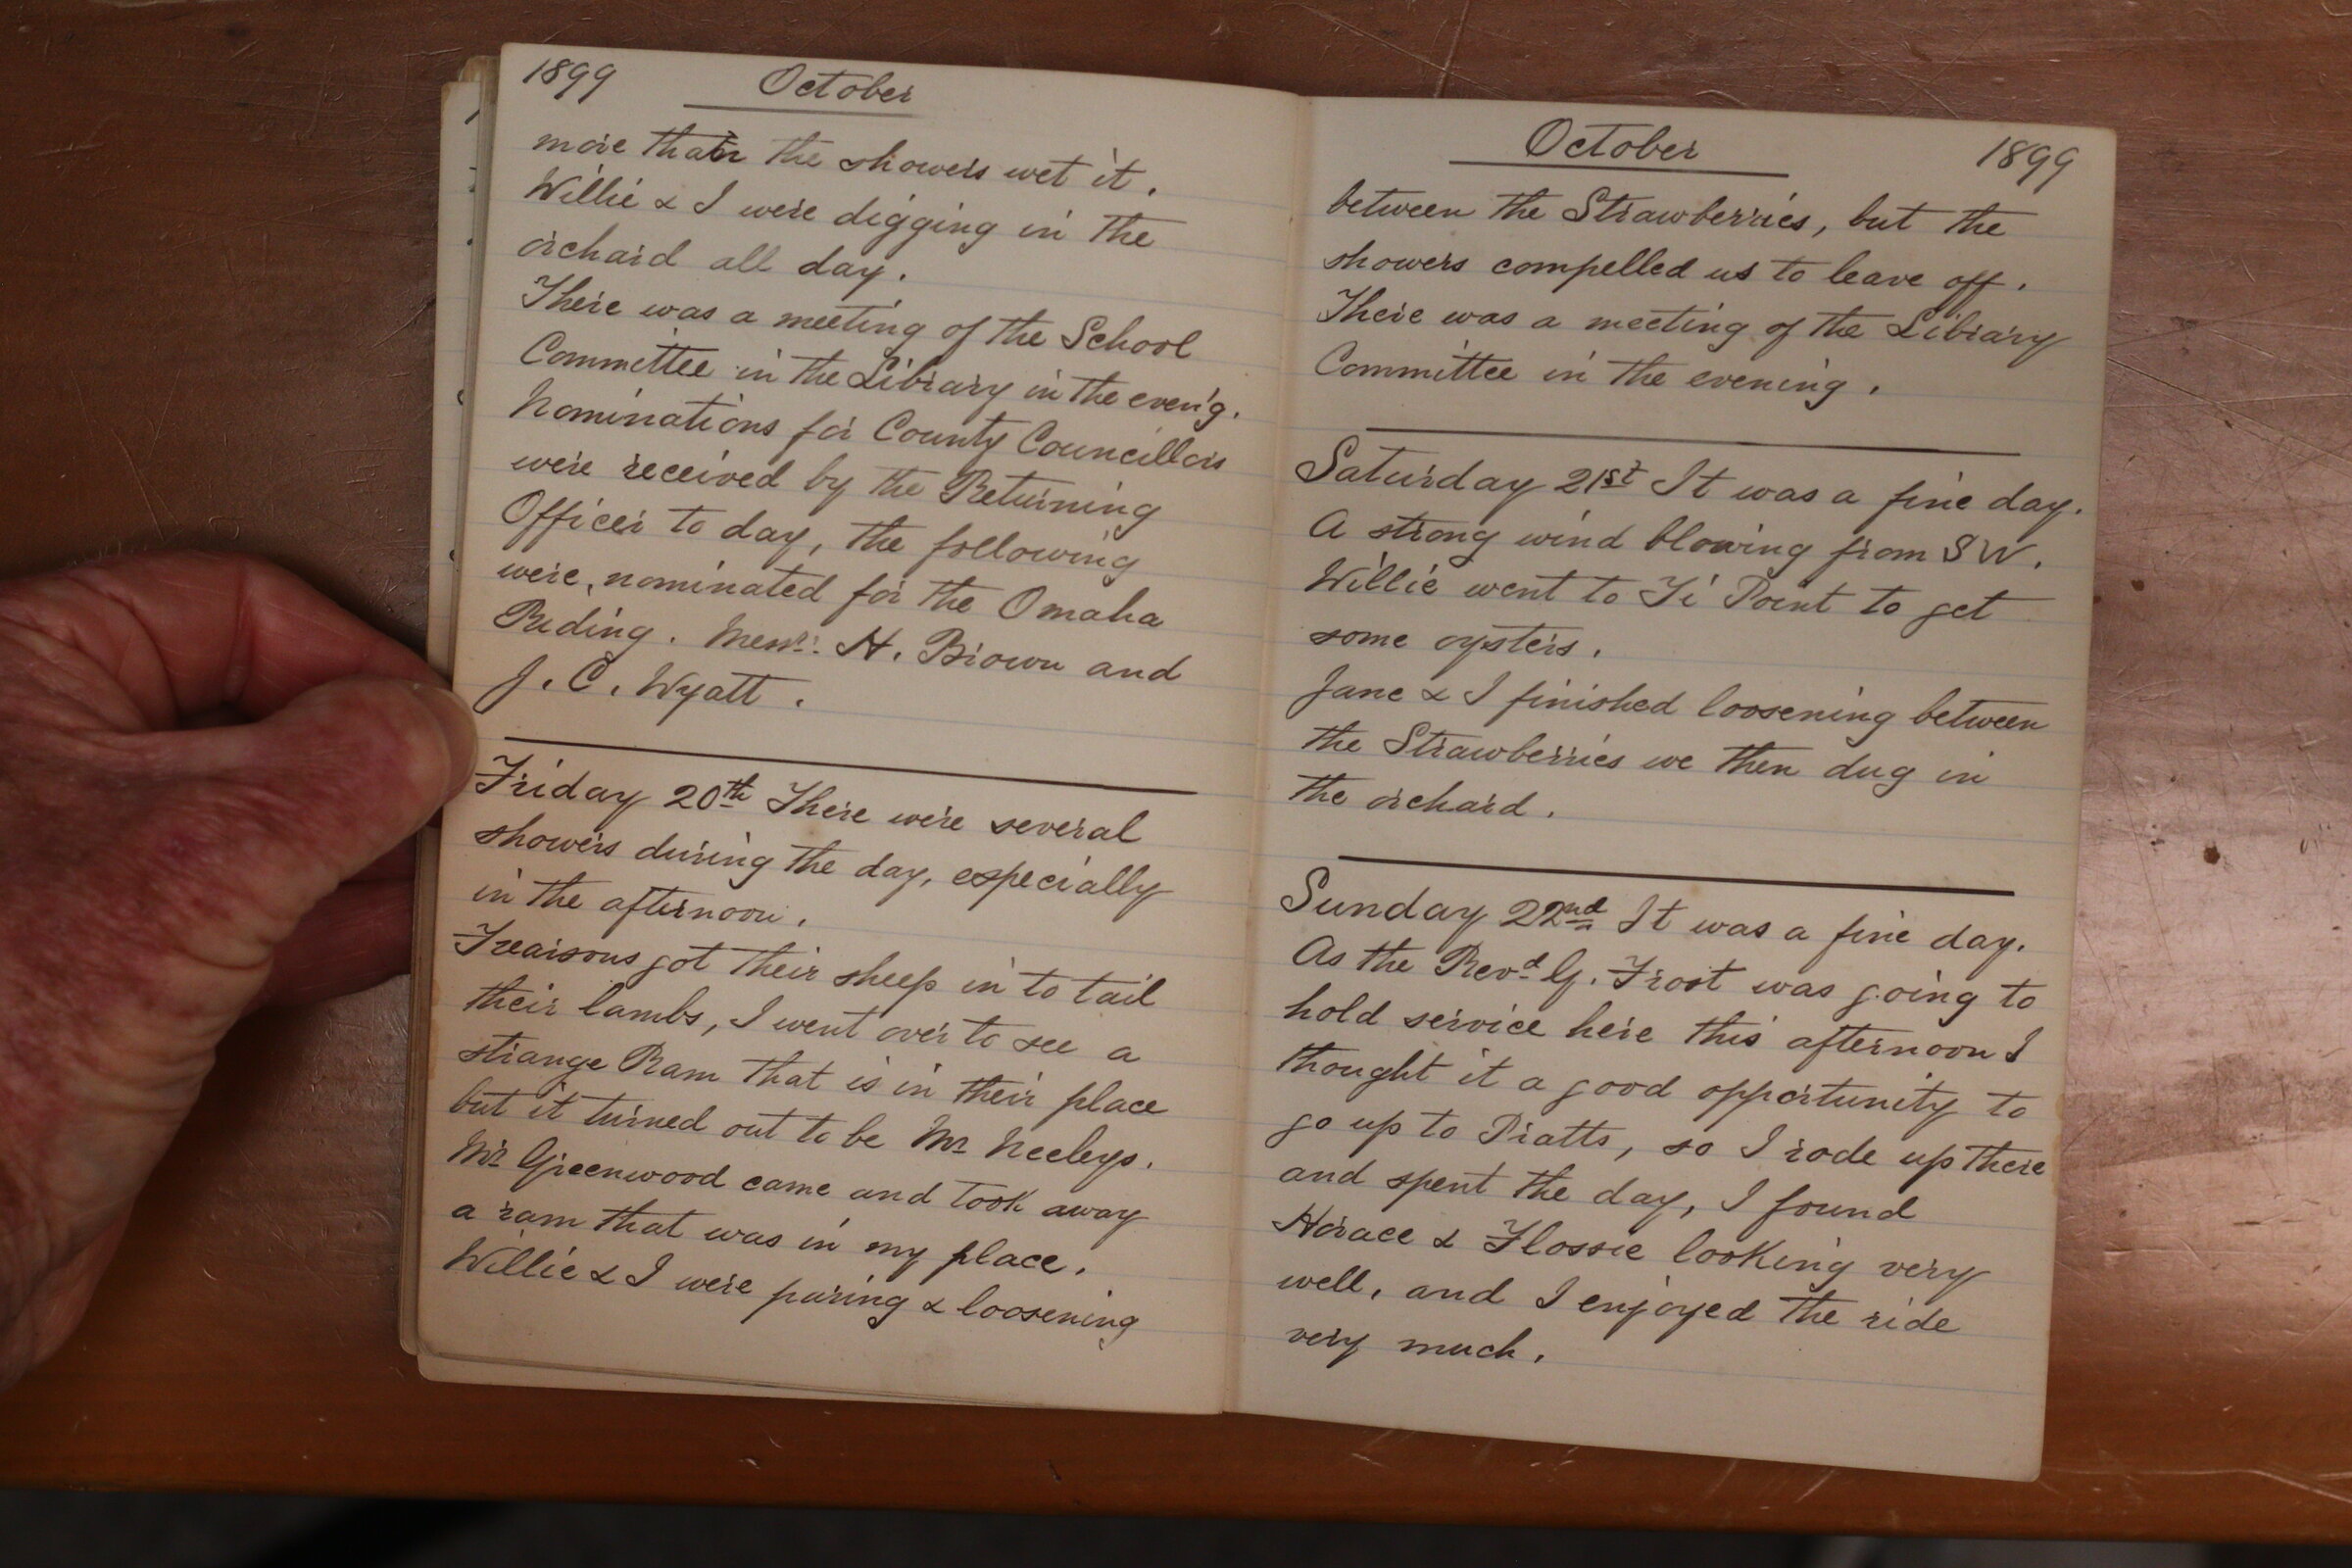 1899 October
more than the showers wet it.
Willie & I were digging in the
orchard all day.
There was a meeting of the School
Committee in the Library in the even'g.
Nominations for County Councillors
were received by the Returning
Officer to day, the following
were, nominated for the Omaha
Riding. Messrs: H. Brown and
J. C. Wyatt.
Friday 20th There were several
showers during the day, especially
in the afternoon.
got their sheep in to tail
their lambs, I went over to see a
strange Ram that is in their place
but it turned out to be Mr Neeleys.
Mr Greenwood came and took away
a ram that was in my place.
Willie & I were puring & loosening
October 1899
between the Strawberries, but the
showers compelled us to leave off.
There was a meeting of the Library
Committee in the evening.
Saturday 21st It was a fine day.
A strong wind blowing from S W.
Willie went to Ti Point to get
some oysters.
Jane & I finished loosening between
the Strawberries we then dug in
the orchard.
Sunday 22nd It was a fine day.
As the Revd G. Frost was going to
hold service here this afternoon I
thought it a good opportunity to
go up to Pratts, so I rode up there
and spent the day, I found
Horace & Flossie looking very
well, and I enjoyed the ride
very much.